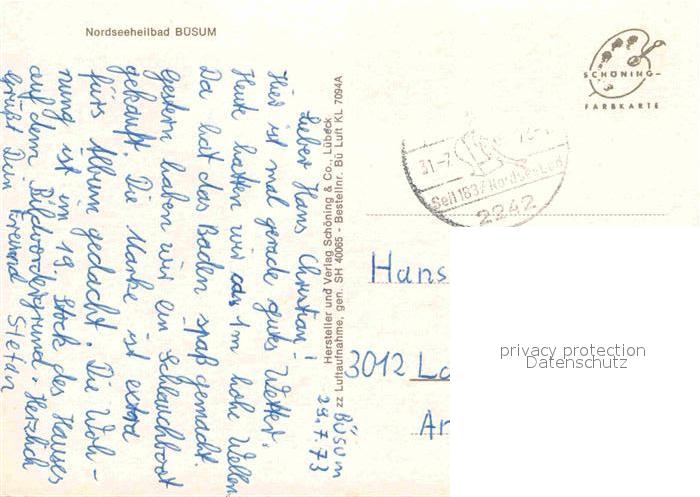 Nordseeheilbad BÜSUM
SCHÖNING-
FARBKARTE
Hersteller und Verlag Schöning & Co., Lübeck
zz Luftaufnahme, gen. SH 40065 - Bestellnr. Bü Luft KL 7094A
31.-7.
Seit 1837 Nordsee-
2242
BÜSUM
29.7.73
Lieber Hans Christian!
Hier ist mal gerade gutes Wetter.
Heute hatten wir 1m hohe Wellen
Da hat das Baden spaß gemacht.
Gestern haben wir ein Schlauchboot
gekauft. Die Marke ist extra
fürs Album gedacht. Die Woh-
nung ist im 19. Stock des Hauses
auf dem Bildvordergrund. Herzlich
grüßt Dein Freund Stefan
Hans
3012 La
privacy protection
Datenschutz